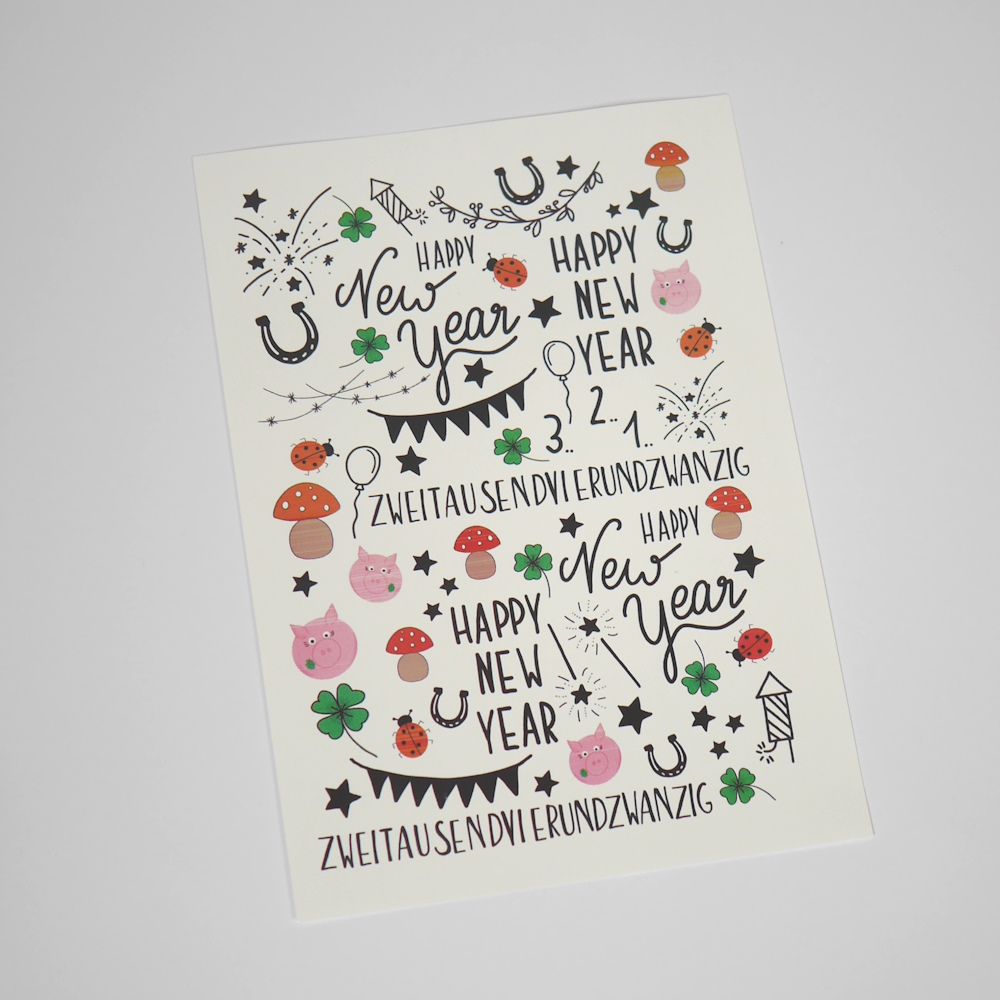 HAPPY
New
Year
HAPPY
NEW
YEAR
3.. 2.. 1..
ZWEITAUSENDVIERUNDZWANZIG
HAPPY
New
Year
HAPPY
NEW
YEAR
ZWEITAUSENDVIERUNDZWANZIG